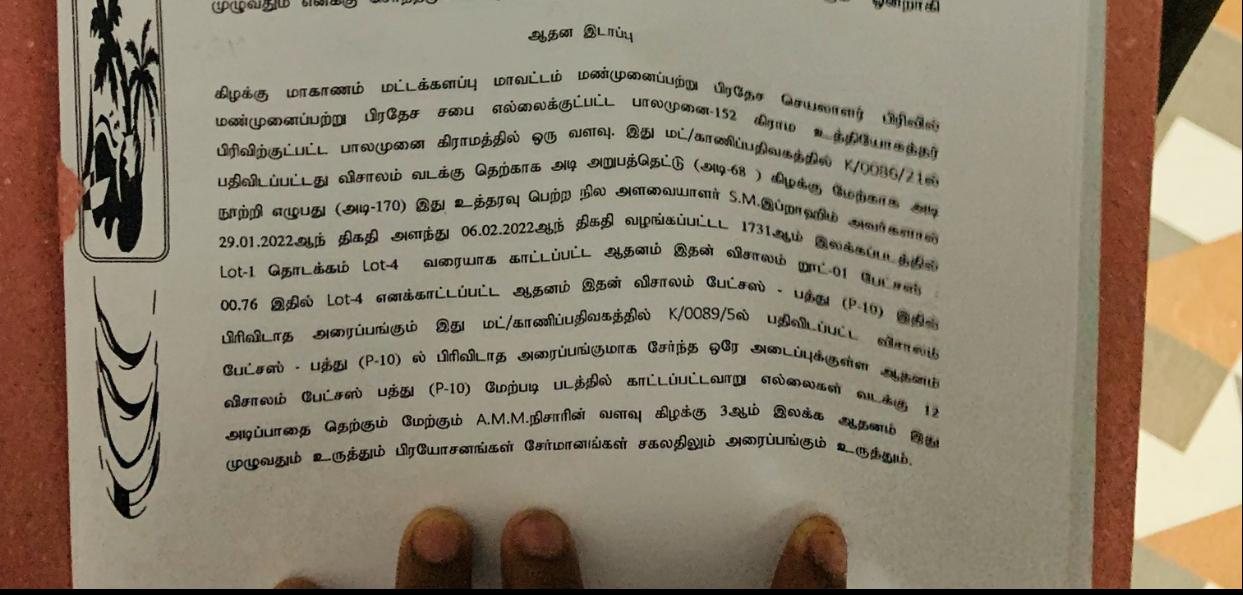 முழுவதும் எனக்கு
ஆதன இடாப்பு
கிழக்கு மாகாணம் மட்டக்களப்பு மாவட்டம் மண்முனைப்பற்று பிரதேச செயலாளர் பிரிவில்
மண்முனைப்பற்று பிரதேச சபை எல்லைக்குட்பட்ட பாலமுனை-152 கிராம உத்தியோகத்தர்
பிரிவிற்குட்பட்ட பாலமுனை கிராமத்தில் ஒரு வளவு. இது மட்/காணிப்பதிவகத்தில் K/0086/21ல்
பதிவிடப்பட்டது விசாலம் வடக்கு தெற்காக அடி அறுபத்தெட்டு (அடி-68 ) கிழக்கு மேற்காக அடி
நூற்றி எழுபது (அடி-170) இது உத்தரவு பெற்ற நில அளவையாளர் S.M.இப்றாஹிம் அவர்களால்
29.01.2022ஆந் திகதி அளந்து 06.02.2022ஆந் திகதி வழங்கப்பட்டட 1731ஆம் இலக்கப்படத்தில்
Lot-1 தொடக்கம் Lot-4 வரையாக காட்டப்பட்ட ஆதனம் இதன் விசாலம் றூட்-01 பேட்சஸ்
00.76 இதில் Lot-4 எனக்காட்டப்பட்ட ஆதனம் இதன் விசாலம் பேட்சஸ் - பத்து (P-10) இதில்
பிரிவிடாத அரைப்பங்கும் இது மட்/காணிப்பதிவகத்தில் K/0089/5ல் பதிவிடப்பட்ட விசாலம்
பேட்சஸ் - பத்து (P-10) ல் பிரிவிடாத அரைப்பங்குமாக சேர்ந்த ஒரே அடைப்புக்குள்ள ஆதனம்
விசாலம் பேட்சஸ் பத்து (P-10) மேற்படி படத்தில் காட்டப்பட்டவாறு எல்லைகள் வடக்கு 12
அடிப்பாதை தெற்கும் மேற்கும் A.M.M.நிசாரின் வளவு கிழக்கு 3ஆம் இலக்க ஆதனம் இது
முழுவதும் உருத்தும் பிரயோசனங்கள் சேர்மானங்கள் சகலதிலும் அரைப்பங்கும் உருத்தும்.